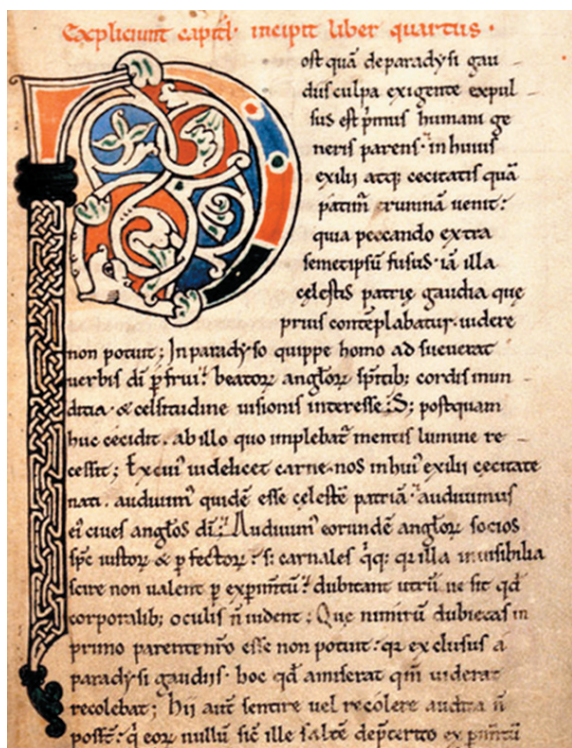 Expliciunt capitl' incipit liber quartus.
Postquā de paradysi gau-
diis culpa exigente expul-
sus est p̄mus humani ge
neris parens. in huius
exilii atq; cecitatis quā
patim̄ erumnā venit:
quia peccando extra
semetipsū fusus. iā illa
cęlestis patrię gaudia quę
prius contēplabatur. videre
non potuit; In paradyso quippe homo adsueuerat
uerbis dī p̄frui. beatoꝝ angl̄oꝝ sp̄itib; cordis mun-
ditia & celsitudine uisionis interesse; S; postquam
huc cecidit. ab illo quo implebat᷑ mentis lumine re-
cessit; Ex cui᷒ uidelicet carne nos in hui᷒ exilii cęcitate
nati. audiuim᷒ quidē esse cęlestē patriā. audiuimus
ei᷒ ciues angl̄os dī. Audiuim᷒ eorundē angl̄oꝝ socios
sp̄c iustoꝝ & p̄fectoꝝ. s; carnales q̄q; qꝛ illa inuisibilia
scire non ualent p̄ exp̄im̄tū. dubitant utrū ne sit qd̄
corporalib; oculis n̄ uident; Quę nimirū dubietas in
primo parente nr̄o esse non potuit. qꝛ exclusus a
paradysi gaudiis. hoc qd̄ amiserat qm̄ uiderat
recolebat; Hii aut̄ sentire uel recolere audita n̄
poss̄t. q̄ eoꝝ nullū sic̄ ille saltē de p̄terito exp̄im̄tū